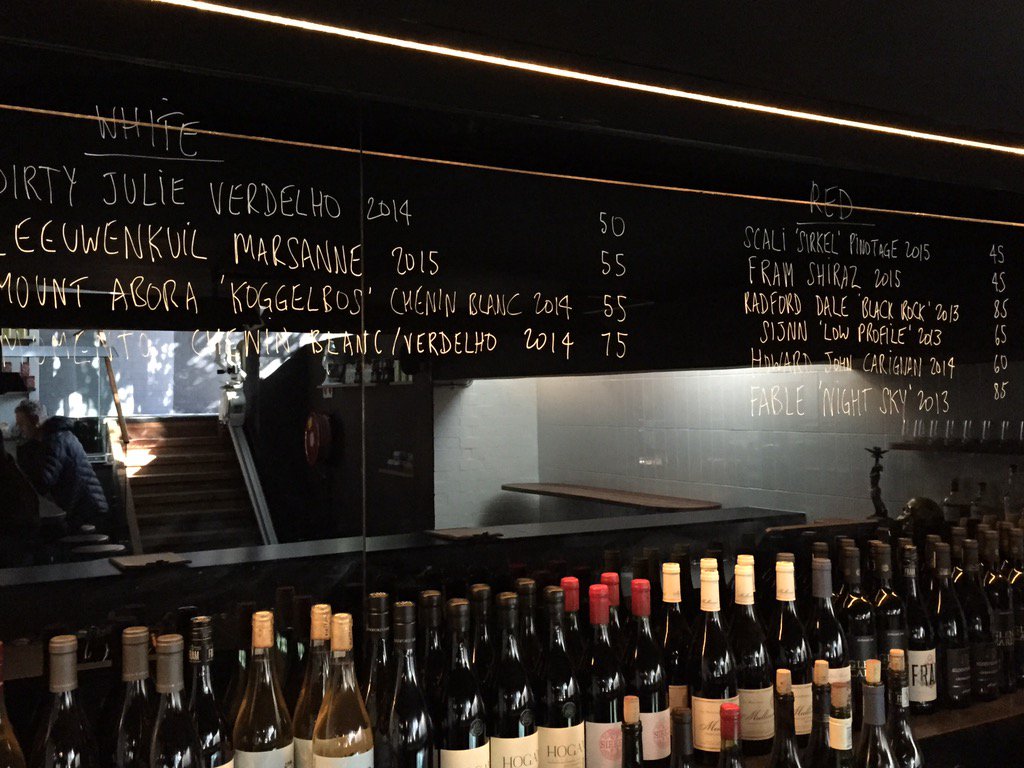 WHITE
DIRTY JULIE VERDELHO 2014 50
LEEUWENKUIL MARSANNE 2015 55
MOUNT ABORA 'KOGGELBOS' CHENIN BLANC 2014 55
CHENIN BLANC/VERDELHO 2014 75
RED
SCALI 'SIRKEL' PINOTAGE 2015 45
FRAM SHIRAZ 2015 45
RADFORD DALE 'BLACK ROCK' 2013 85
SIJNN 'LOW PROFILE' 2013 65
HOWARD JOHN CARIGNAN 2014 60
FABLE 'NIGHT SKY' 2013 85
HOGA
HOGA
FRA